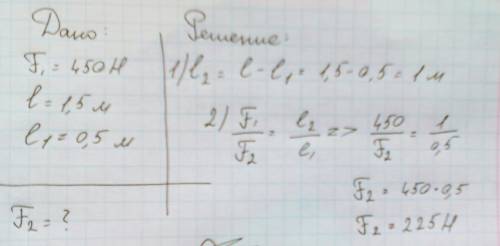 Дано:
F₁ = 450 Н
l = 1,5 м
l₁ = 0,5 м
F₂ = ?
Решение:
1) l₂ = l - l₁ = 1,5 - 0,5 = 1 м
2) F₁/F₂ = l₂/l₁ => 450/F₂ = 1/0,5
F₂ = 450 · 0,5
F₂ = 225 Н